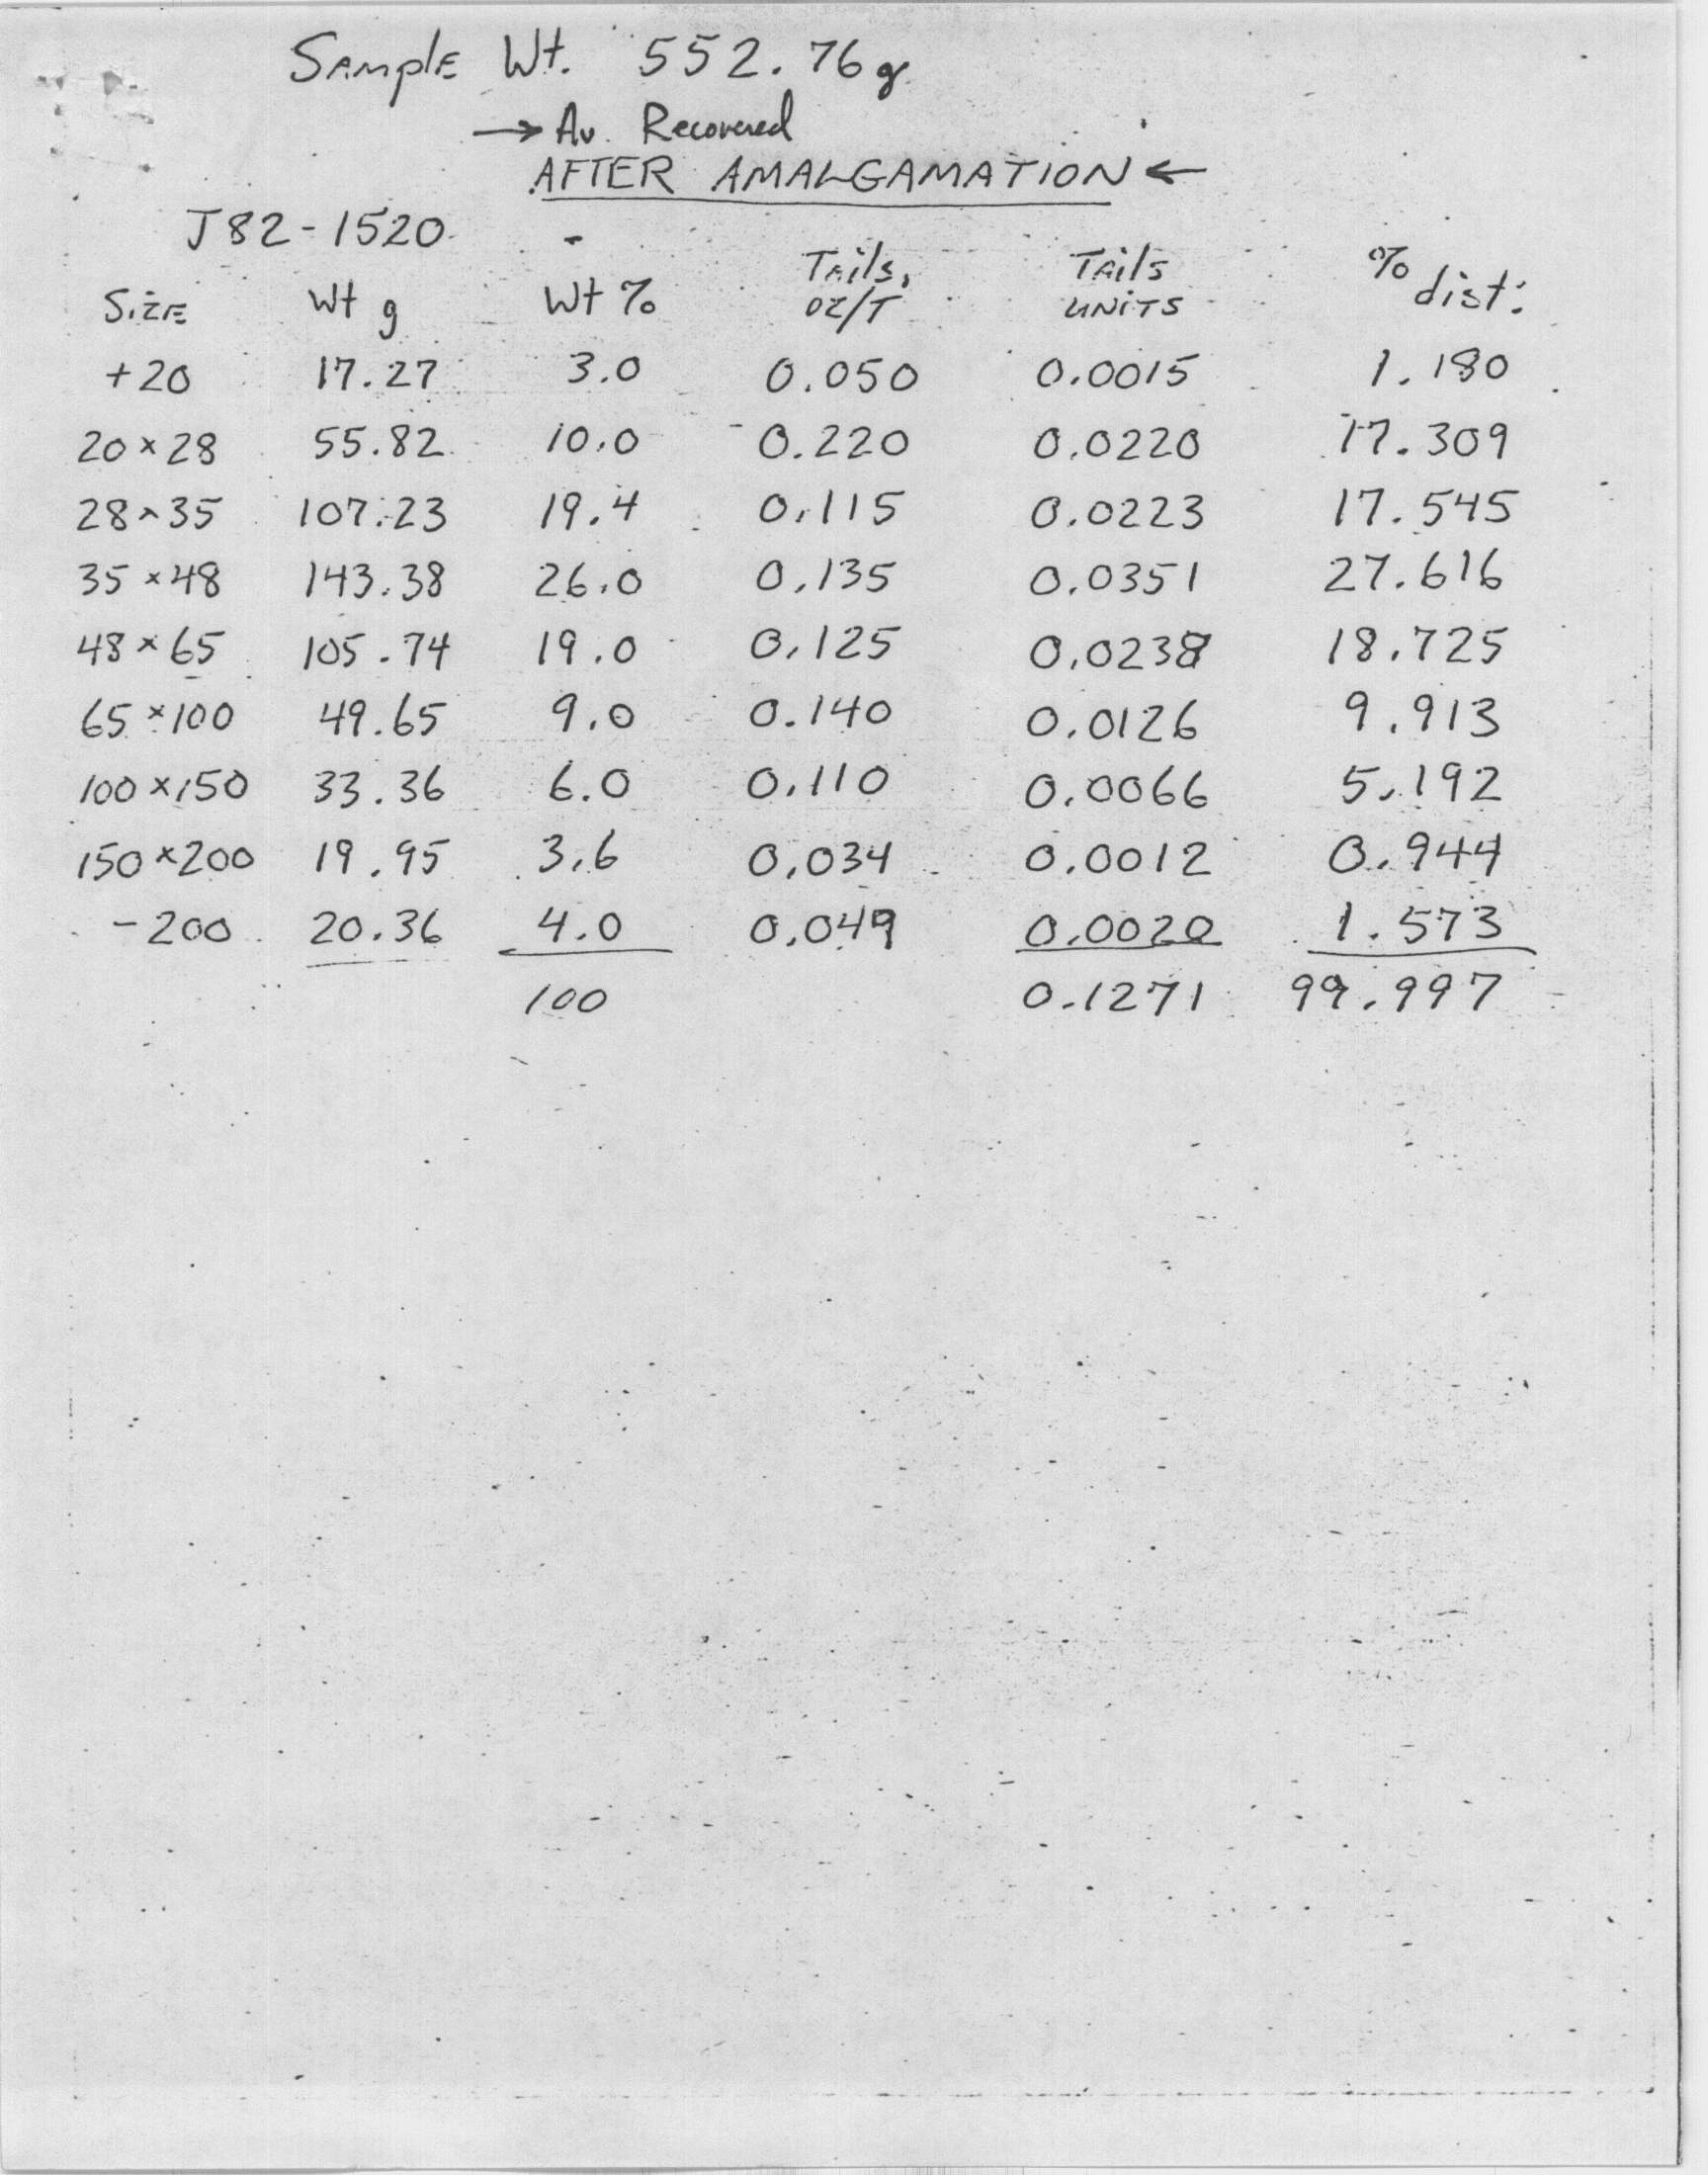 Sample Wt. 552.76g
→ Au. Recovered
AFTER AMALGAMATION ←
J82-1520 -
Size Wt g Wt % Tails, oz/T Tails units % dist.
+20 17.27 3.0 0.050 0.0015 1.180
20 x 28 55.82 10.0 0.220 0.0220 17.309
28 x 35 107.23 19.4 0.115 0.0223 17.545
35 x 48 143.38 26.0 0.135 0.0351 27.616
48 x 65 105.74 19.0 0.125 0.0238 18.725
65 x 100 49.65 9.0 0.140 0.0126 9.913
100 x 150 33.36 6.0 0.110 0.0066 5.192
150 x 200 19.95 3.6 0.034 0.0012 0.944
-200 20.36 4.0 0.049 0.0020 1.573
100 0.1271 99.997